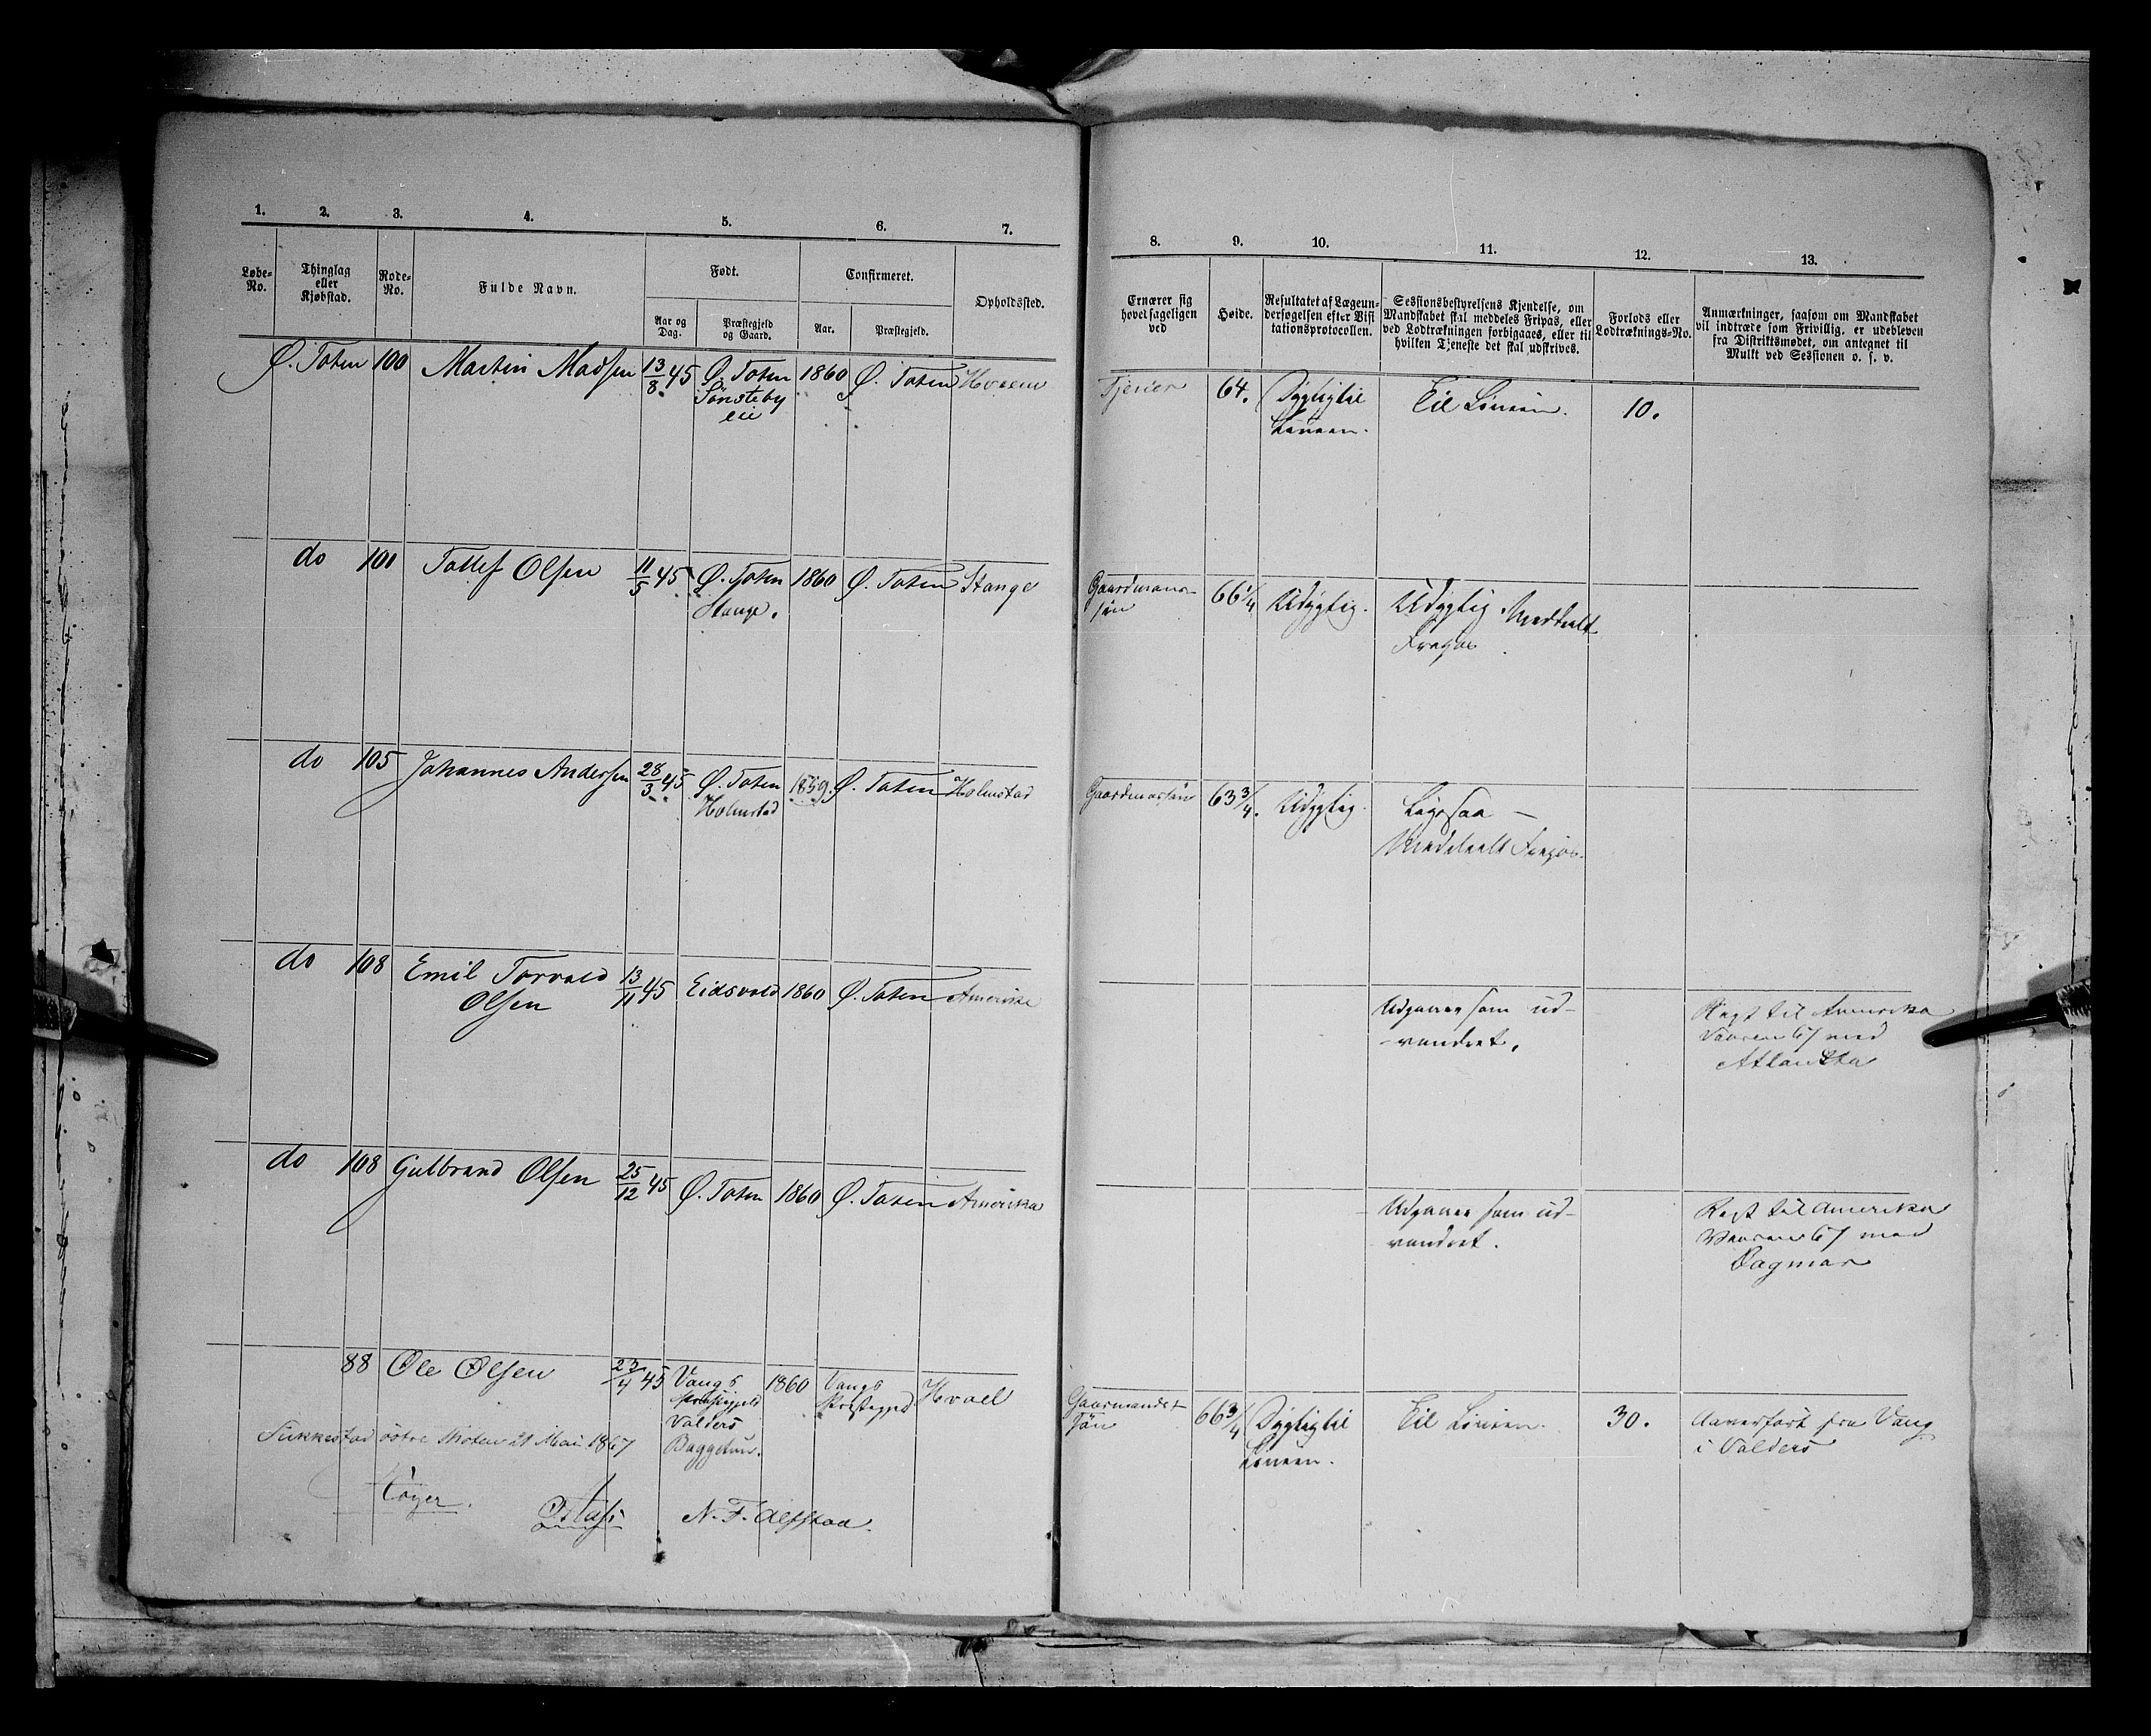 1. 2. 3. 4. 5. 6. 7.
Løbe-No. Thinglag eller Kjøbstad. Rode-No. Fulde Navn. Født. Confirmeret. Opholdssted.
Aar og Dag. Præstegjeld og Gaard. Aar. Præstegjeld.
Ø. Toten 100 Martin Madsen 13/8 45 Ø. Toten 1860 Ø. Toten Hveem
Sønsteby
eie
do 101 Tollef Olsen 11/5 45 Ø. Toten 1860 Ø. Toten Stange
Stange.
do 105 Johannes Andersen 28/3 45 Ø. Toten 1859. Ø. Toten Holmstad
Holmstad
do 108 Emil Torvald 13/11 45 Eidsvold 1860 Ø. Toten Amerika
Olsen
do 108 Gulbrand Olsen 25/12 45 Ø. Toten 1860 Ø. Toten Amerika
88 Ole Olsen 23/4 45 Vangs 1860 Vangs Hvael
Præstegjeld Præstegjeld
Valders
Baggetun.
Sukkestad østre Toten 21 Mai 1867
N. F. Alfstad.
8. 9. 10. 11. 12. 13.
Ernærer sig hovedsageligen ved
Høide.
Resultatet af Lægeundersøgelsen efter Visitationsprotocollen.
Sessionsbestyrelsens Kjendelse, om
Mandskabet skal meddeles Fripas, eller
ved Lodtrækningen forbigaaes, eller til
hvilken Tjeneste det skal udskrives.
Forlods eller
Lodtræknings-No.
Anmærkninger, saasom om Mandskabet
vil indtræde som Frivillig, er udebleven
fra Distriktsmødet, om antegnet til
Mulkt ved Sessionen o. s. v.
Tjener 64. Dygtig til Til Linien. 10.
Linien.
Gaardmands- 66 1/4 Udygtig. Udygtig. Meddeelt
søn Fripas
Gaardmansøn 63 3/4. Udygtig. Ligesaa —
Meddeelt Fripas.
Udgaaer som ud- Reist til Amerika
-vandret. Vaaren 67 med
Atlantha
Udgaaer som ud- Reist til Amerika
vandret. Vaaren 67 med
Dagmar
Gaarmands- 66 3/4 Dygtig til Til Linien. 30. Overført fra Vang
Søn Linien. i Valders